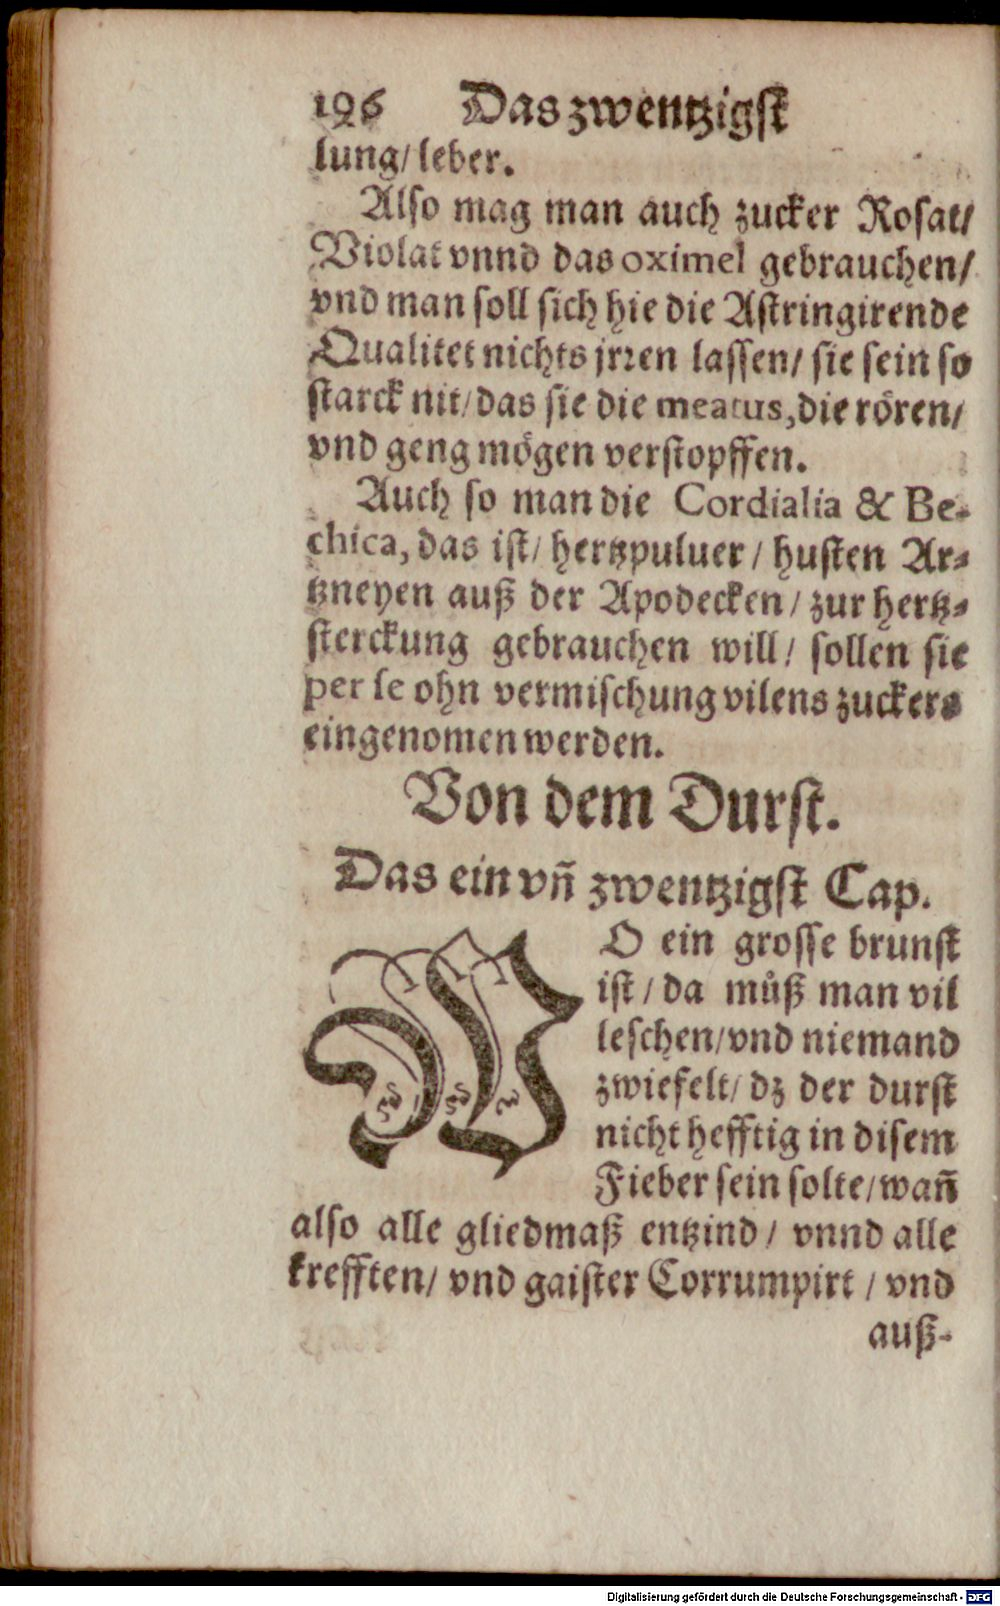 196 Das zwentzigst
lung/ leber.
Also mag man auch zucker Rosat/
Violat vnnd das oximel gebrauchen/
vnd man soll sich hie die Astringirende
Qualitet nichts jrren lassen/ sie sein so
starck nit/ das sie die meatus, die rören/
vnd geng mögen verstopffen.
Auch so man die Cordialia & Be-
chica, das ist/ hertzpuluer/ husten Ar-
tzneyen auß der Apodecken/ zur hertz-
sterckung gebrauchen will/ sollen sie
per se ohn vermischung vilens zuckers
eingenomen werden.
Von dem Durst.
Das ein vñ zwentzigst Cap.
WO ein grosse brunst
ist/ da můß man vil
leschen/ vnd niemand
zwiefelt/ dz der durst
nicht hefftig in disem
Fieber sein solte/ wañ
also alle gliedmaß entzind/ vnnd alle
krefften/ vnd gaister Corrumpirt/ vnd
auß-
Digitalisierung gefördert durch die Deutsche Forschungsgemeinschaft - DFG